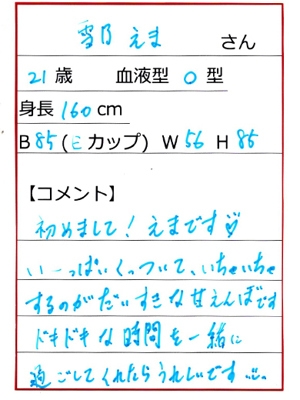 雪乃 えま さん
21歳 血液型 O 型
身長 160cm
B85(Eカップ) W56 H85
【コメント】
初めまして！えまです♡
いーっぱいくっついて、いちゃいちゃ
するのがだいすきな甘えんぼです
ドキドキな時間を一緒に
過ごしてくれたらうれしいです